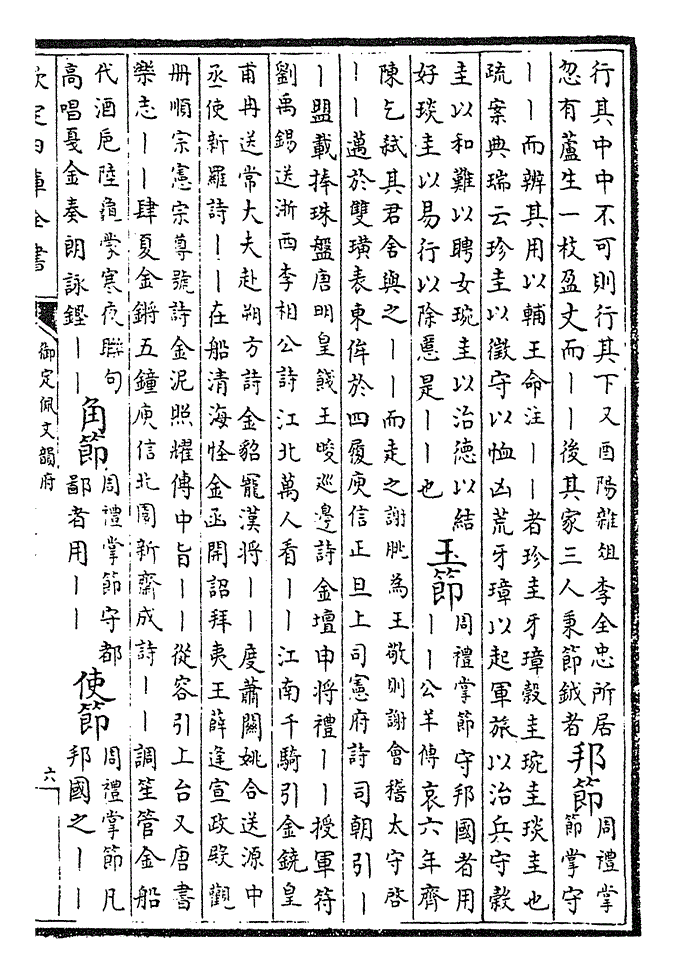 行其中中不可則行其下又酉陽雜俎李全忠所居
忽有蘆生一枝盈丈而丨丨後其家三人秉節鉞者
邦節
周禮掌
節掌守
丨丨而辨其用以輔王命注丨丨者珍圭牙璋穀圭琬圭琰圭也
疏案典瑞云珍圭以徵守以恤凶荒牙璋以起軍旅以治兵守穀
圭以和難以聘女琬圭以治德以結
好琰圭以易行以除慝是丨丨也
玉節
周禮掌節守邦國者用
丨丨公羊傳哀六年齊
陳乞弑其君舍與之丨丨而走之謝朓為王敬則謝會稽太守啓
丨丨邁於雙璜表東侔於四履庾信正旦上司憲府詩司朝引丨
丨盟載捧珠盤唐明皇餞王晙巡邊詩金壇申將禮丨丨授軍符
劉禹錫送浙西李相公詩江北萬人看丨丨江南千騎引金鐃皇
甫冉送常大夫赴朔方詩金貂寵漢將丨丨度蕭關姚合送源中
丞使新羅詩丨丨在船清海怪金函開詔拜夷王薛逢宣政殿觀
冊順宗憲宗尊號詩金泥照耀傳中旨丨丨從容引上台又唐書
樂志丨丨肆夏金鏘五鐘庾信北園新齋成詩丨丨調笙管金船
代酒巵陸龜蒙寒夜聯句
高唱戞金奏朗詠鏗丨丨
角節
周禮掌節守都
鄙者用丨丨
使節
周禮掌節凡
邦國之丨丨
欽定四庫全書
御定佩文韻府
六